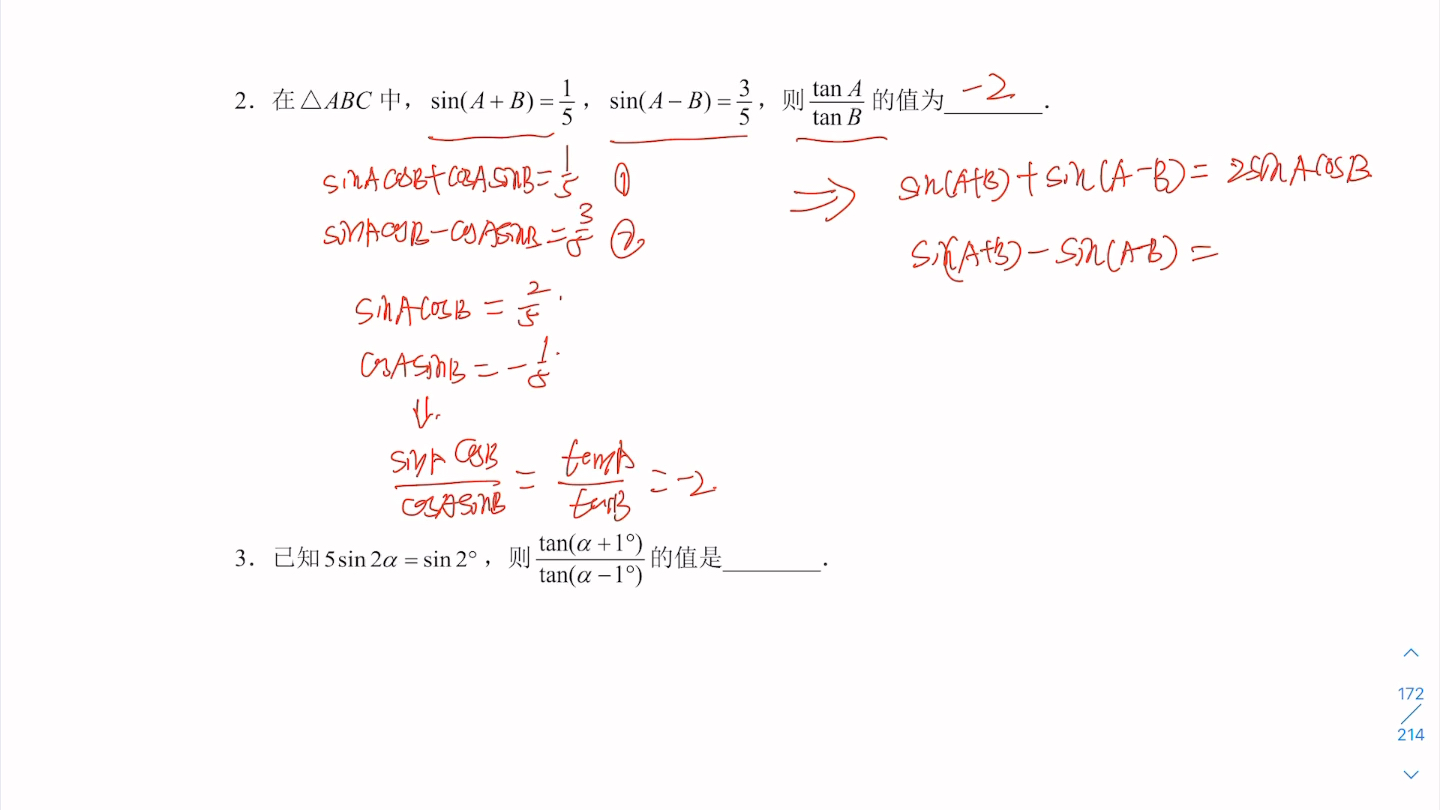 2. 在△ABC 中，sin(A+B)=1/5，sin(A-B)=3/5，则 tan A/tan B 的值为 -2 .
sinAcosB+cosAsinB=1/5 ①
sinAcosB-cosAsinB=3/5 ②
⇒ sin(A+B)+sin(A-B)=2sinAcosB
sin(A+B)-sin(A-B)=
sinAcosB=2/5.
cosAsinB=-1/5.
⇓.
sinAcosB/cosAsinB=tanA/tanB=-2
3. 已知5sin2α=sin2°，则 tan(α+1°)/tan(α-1°) 的值是________.
172
214